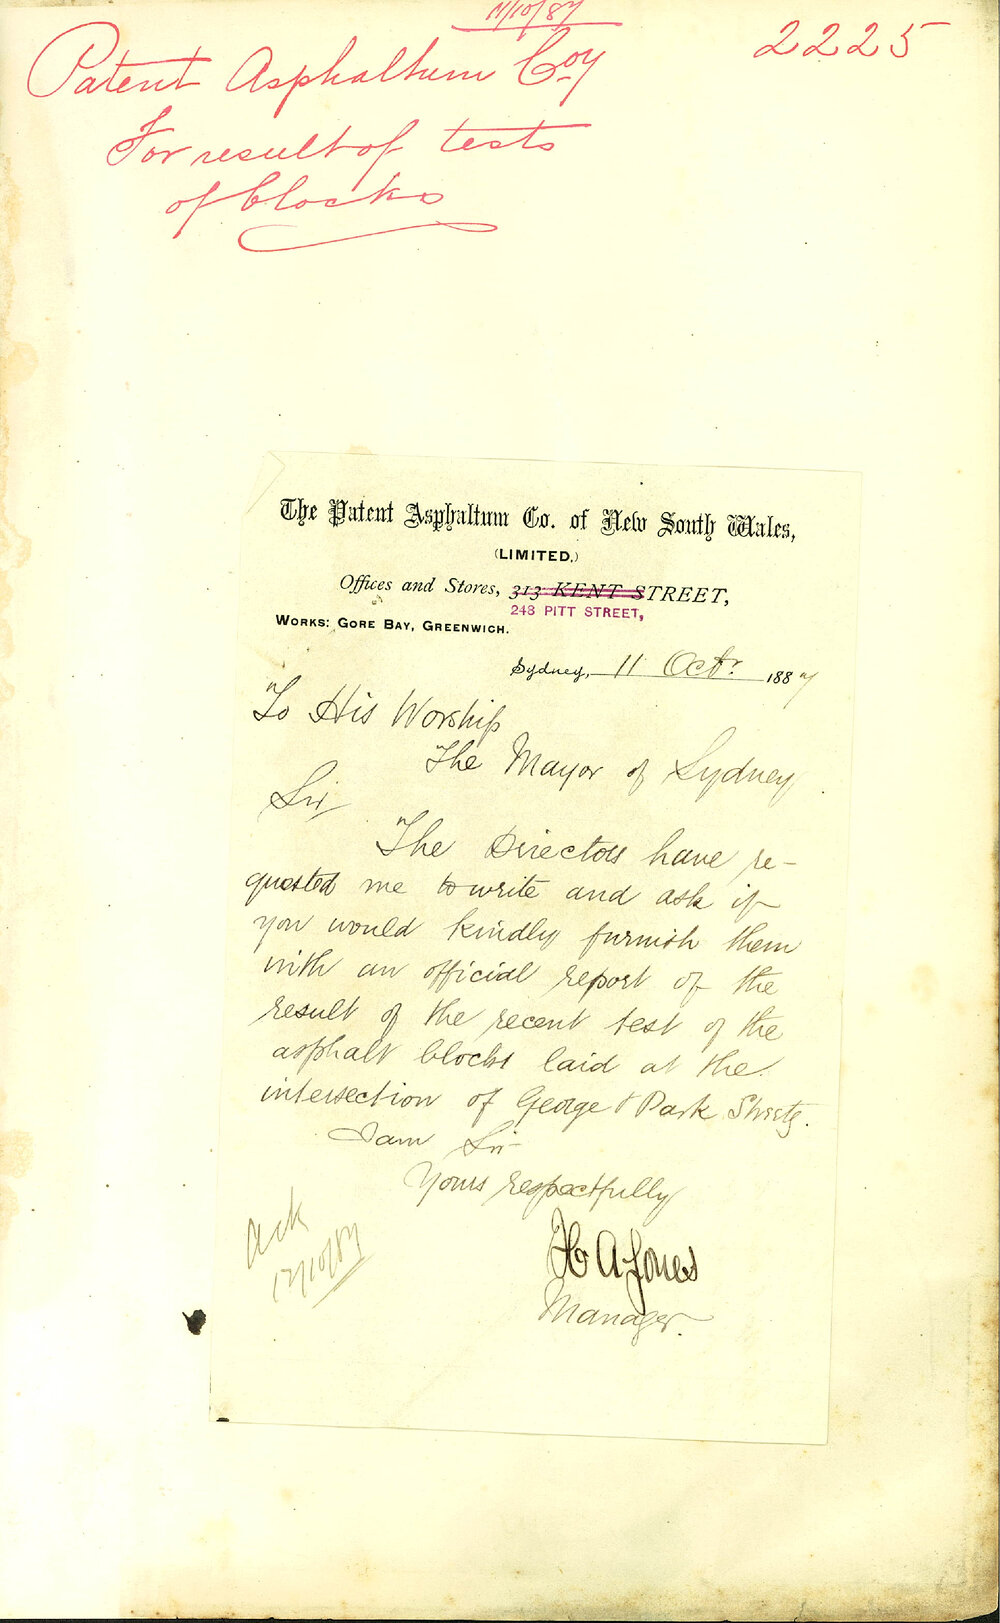 11/10/87
2225
Patent Asphaltum Coy
For result of tests
of blocks
The Patent Asphaltum Co. of New South Wales,
(LIMITED.)
Offices and Stores, 313 KENT STREET,
248 PITT STREET,
WORKS: GORE BAY, GREENWICH.
Sydney, 11 Octr. 1887
To His Worship
The Mayor of Sydney
Sir
The Directors have re-
quested me to write and ask if
you would kindly furnish them
with an official report of the
result of the recent test of the
asphalt blocks laid at the
intersection of George & Park Streets.
I am Sir
Yours respectfully
H A Jones
Manager.
Ack
12/10/87